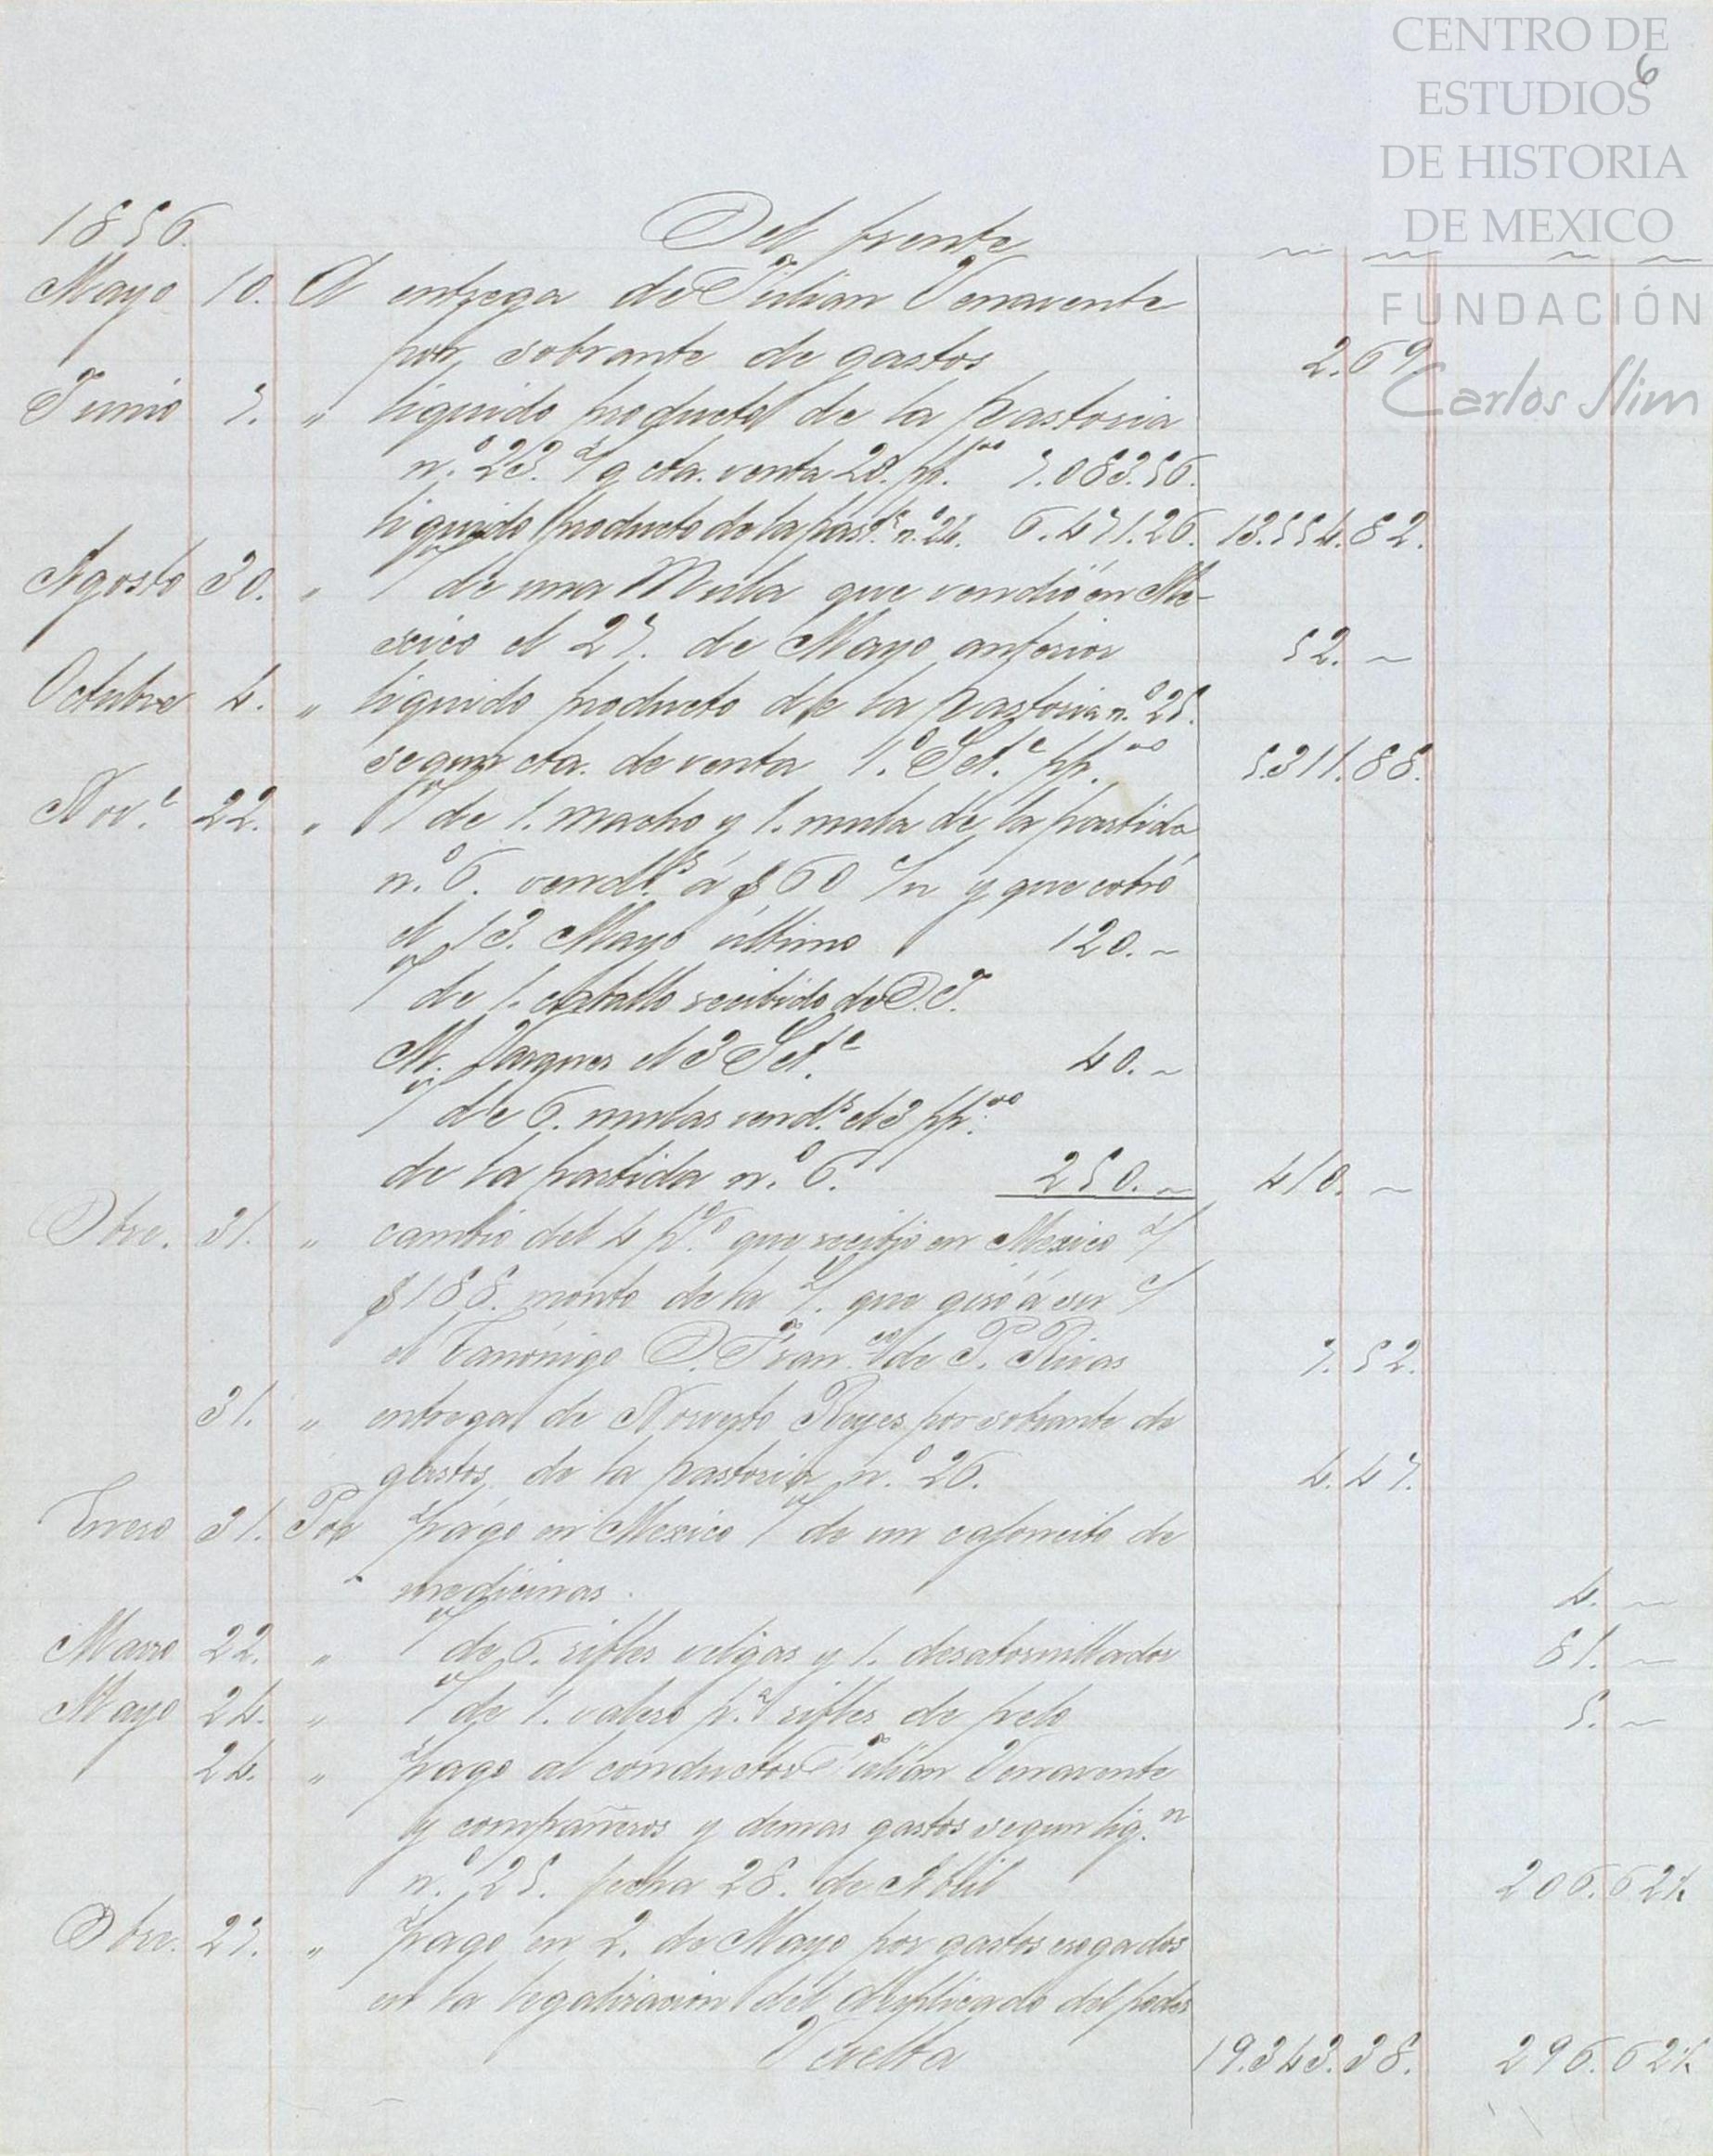 CENTRO DE
ESTUDIOS
DE HISTORIA
DE MEXICO
FUNDACIÓN
Carlos Slim
6
1856. Del frente ~ ~ ~ ~
Mayo 10. A entrega de Julian Venavente
por sobrante de gastos 2.69
Junio 7. " liquido producto de la pastoria
n.º 23. cta. venta 20. pp.do 7.083.56.
liquido producto de la past.ª n.º 24. 6.471.26. 13.554.82.
Agosto 30. " de una Mula que vendió en Me-
xico el 27. de Mayo anterior 52. ~
Octubre 4. " liquido producto de la pastoria n.º 25.
segun cta. de venta 1.º Set.e pp.do 5.311.88.
Nov.e 22. " de 1. macho y 1. mula de la partida
n.º 6. vend.s á $60 y que cobró
el 13. Mayo último 120. ~
de 1. caballo recibido de D. J.
M. Vargues el 3 Set.e 40. ~
de 6. mulas vend.s el 3 pp.do
de la partida n.º 6. 250. ~ 410. ~
Dbre. 31. " cambio del 4 p.% que recibió en Mexico
$188. monto de la que giró á su
el Canónigo D. Fran.co de P. Rivas 7.52.
31. " entrega de Norverto Reyes por sobrante de
gastos de la pastoria n.º 26. 4.47.
Enero 31. Por pago en Mexico de un cajoncito de
medicinas. 4. ~
Marzo 22. " de 6. rifles velgas y 1. desatornillador 81. ~
Mayo 24. " de 1. valero p.ª rifles de pelo 5. ~
24. " pago al conductor Julian Venavente
y compañeros y demas gastos segun liq.n
n.º 25. fecha 28. de Abril 206.62½
Dbre. 27. " pago en 2. de Mayo por gastos erogados
en la legalizacion del duplicado del poder
Vuelta 19.343.38. 296.62½